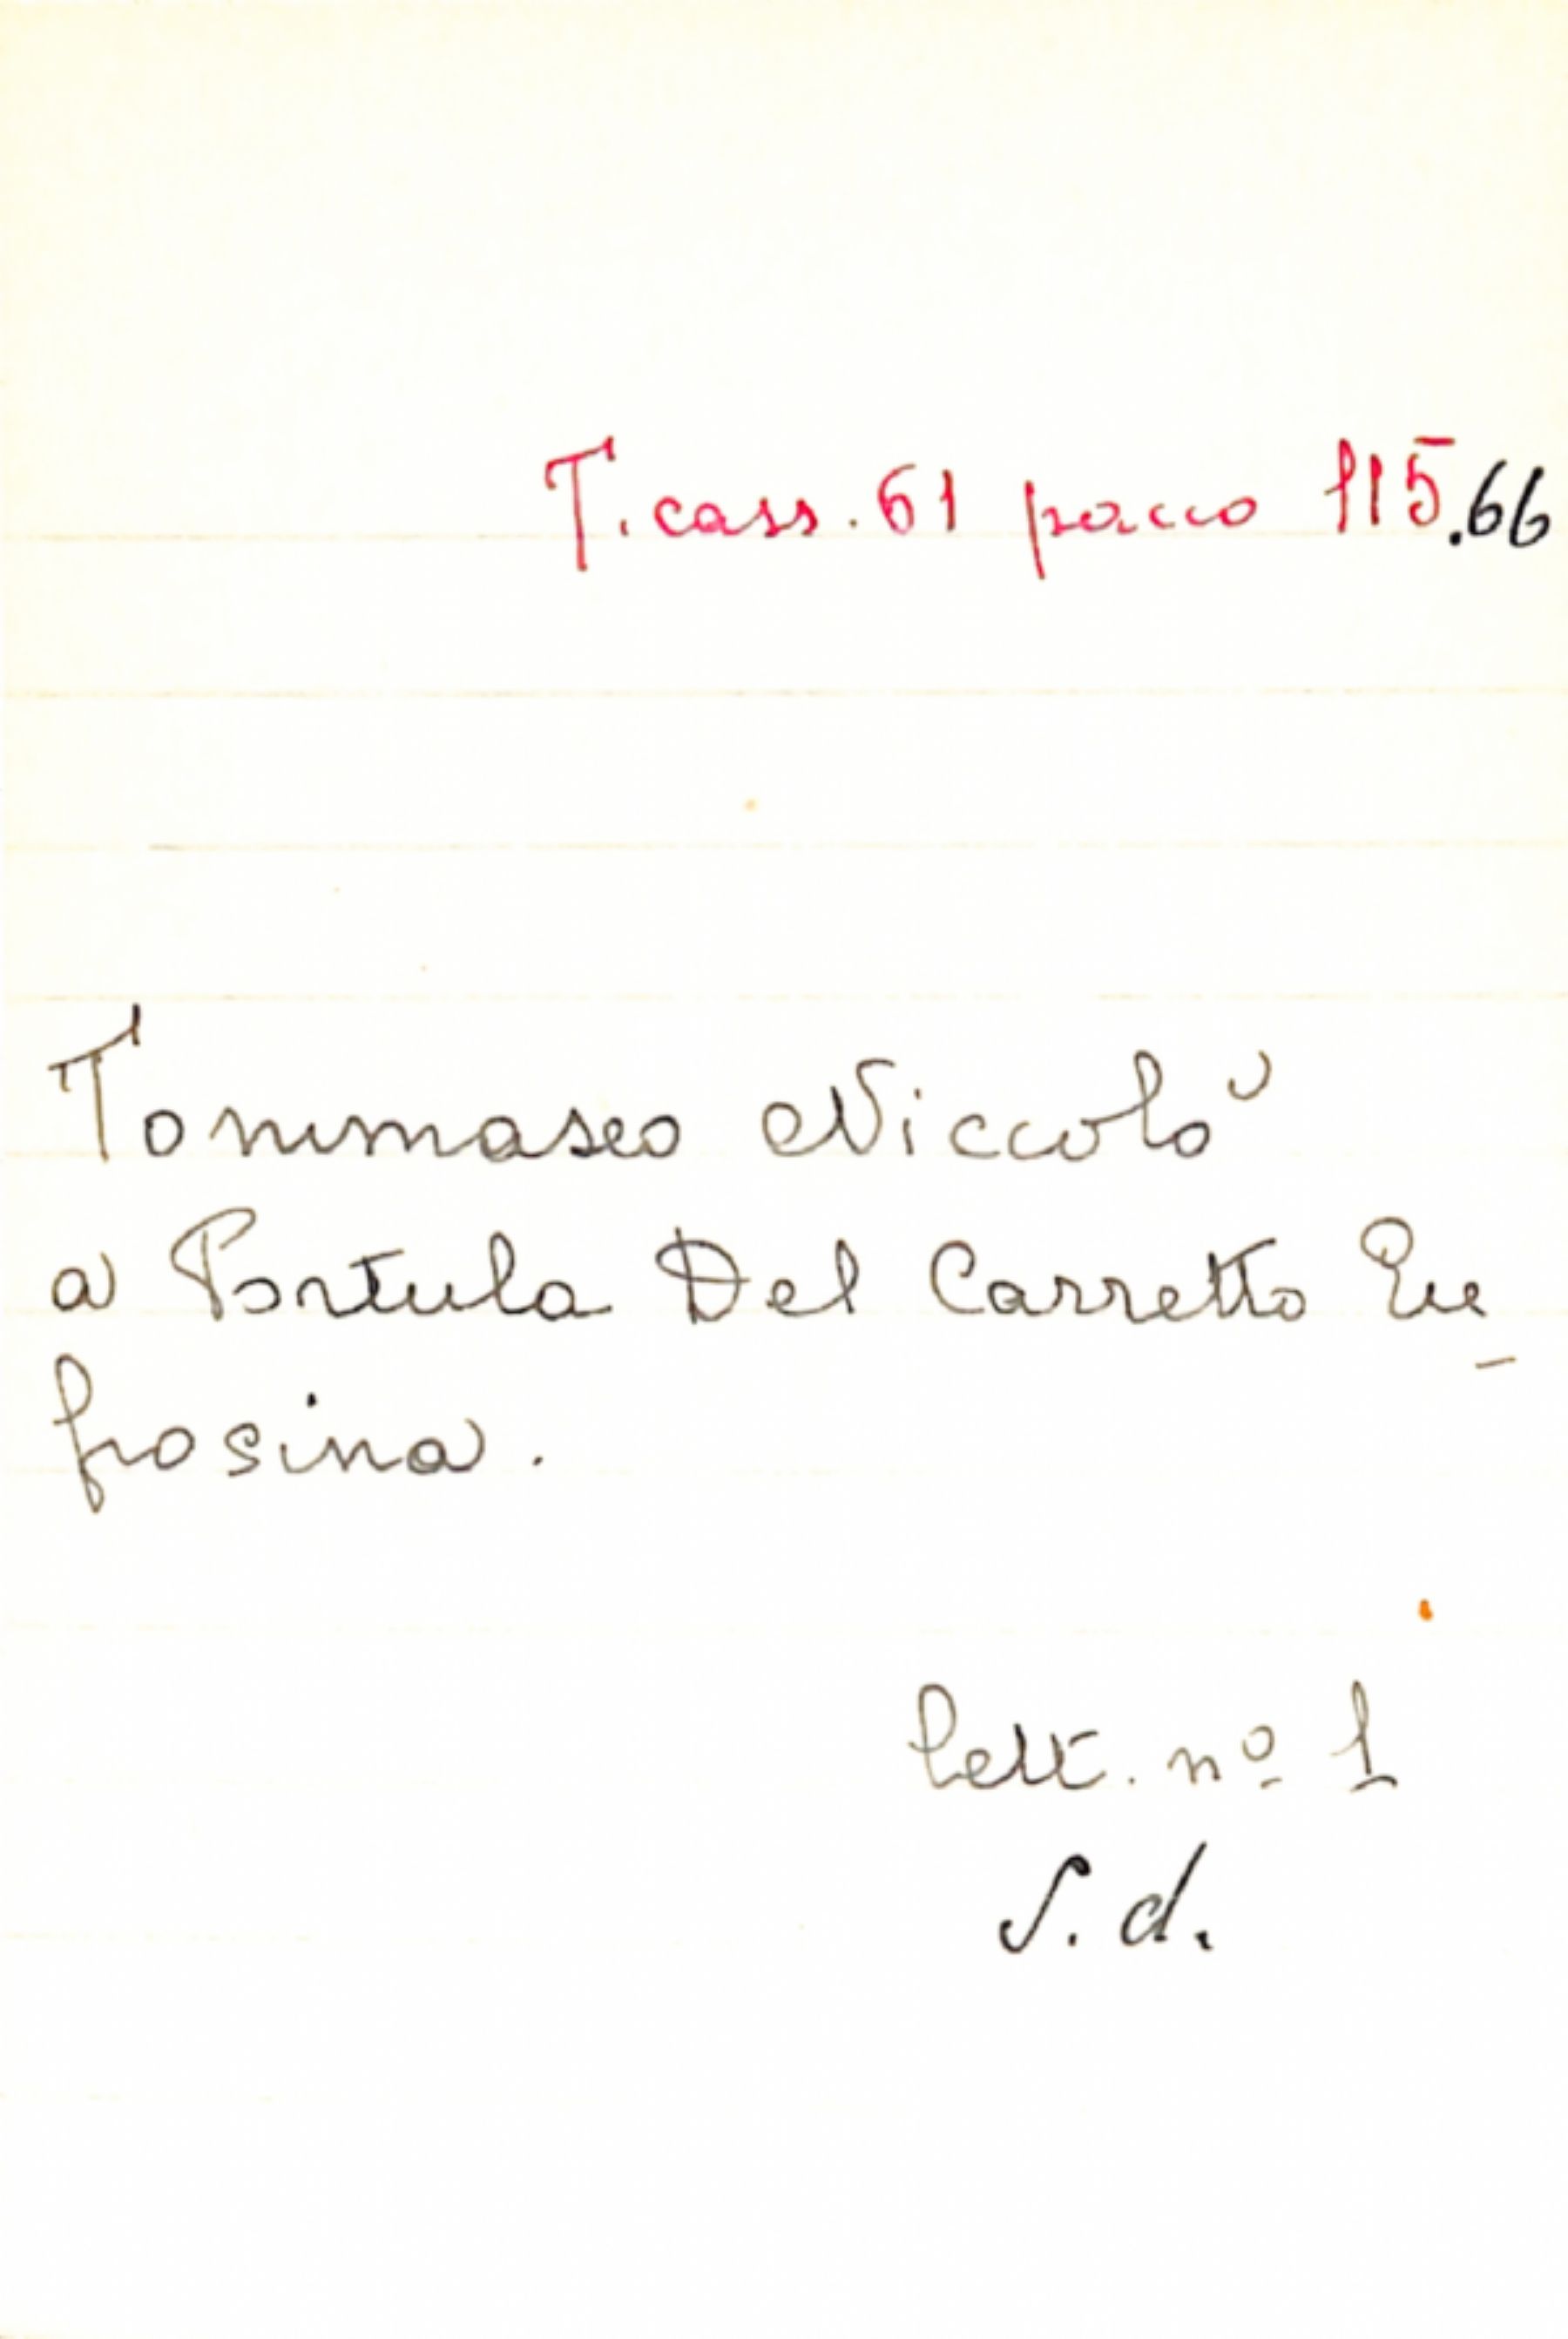 T. cass. 61 pacco 115.66
Tommaseo Niccolò
a Portula Del Carretto Eu-
frosina.
lett. nº 1
S. d.